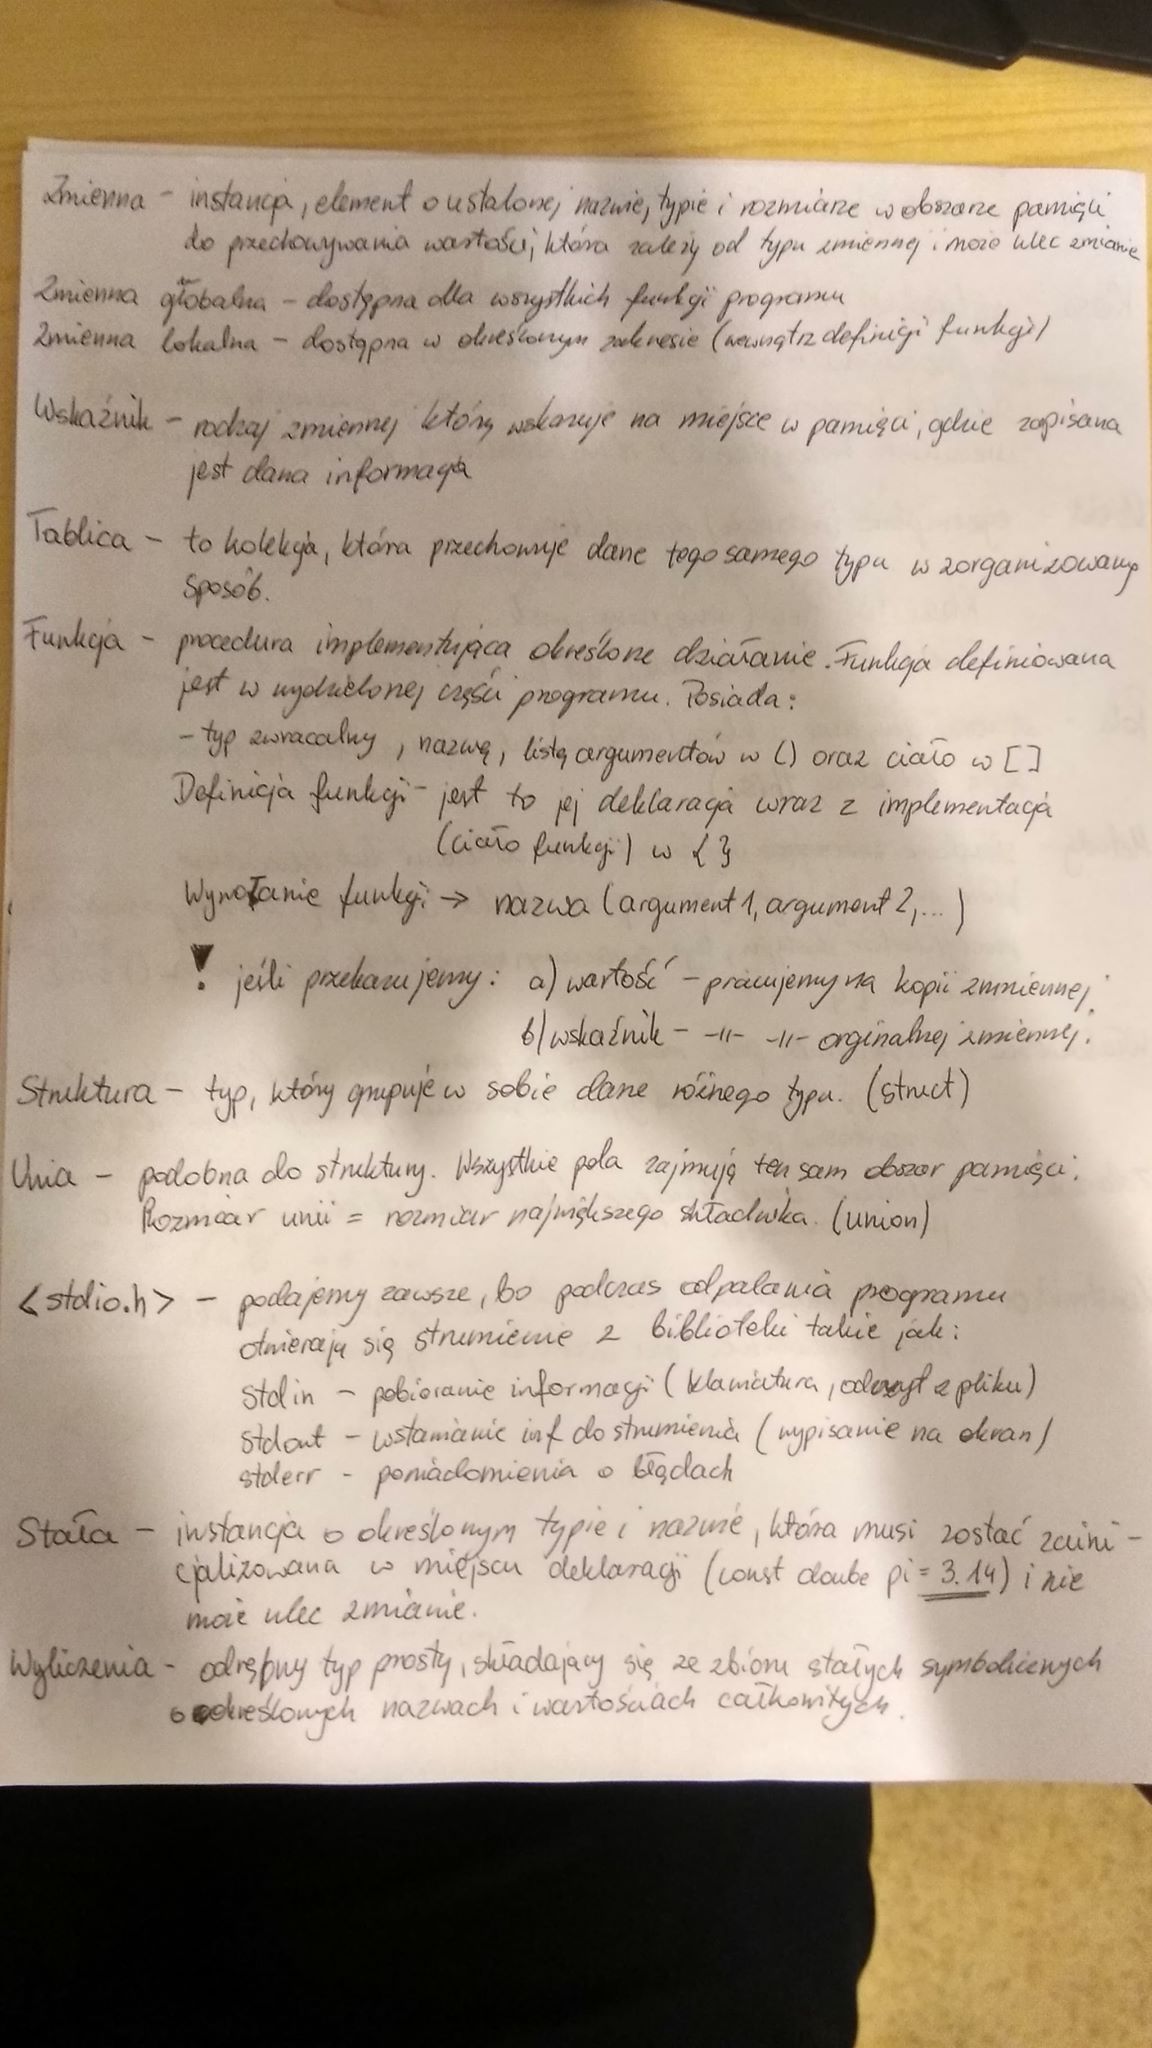 Zmienna - instancja, element o ustalonej nazwie, typie i rozmiarze w obszarze pamięci
do przechowywania wartości, która zależy od typu zmiennej i może ulec zmianie
Zmienna globalna - dostępna dla wszystkich funkcji programu
Zmienna lokalna - dostępna w określonym zakresie (wewnątrz definicji funkcji)
Wskaźnik - rodzaj zmiennej który wskazuje na miejsce w pamięci, gdzie zapisana
jest dana informacja
Tablica - to kolekcja, która przechowuje dane tego samego typu w zorganizowany
sposób.
Funkcja - procedura implementująca określone działanie. Funkcja definiowana
jest w wydzielonej części programu. Posiada:
- typ zwracalny, nazwę, listę argumentów w () oraz ciało w []
Definicja funkcji - jest to jej deklaracja wraz z implementacja
(ciało funkcji) w { }
Wywołanie funkcji → nazwa (argument 1, argument 2,...)
! jeśli przekazujemy: a) wartość - pracujemy na kopii zmniennej.
b) wskaźnik - -||- -||- orginalnej zmiennej.
Struktura - typ, który grupuje w sobie dane różnego typu. (struct)
Unia - podobna do struktury. Wszystkie pola zajmują ten sam obszar pamięci.
Rozmiar unii = rozmiar największego składnika. (union)
<stdio.h> - podajemy zawsze, bo podczas odpalania programu
otwierają się strumienie z biblioteki takie jak:
stdin - pobieranie informacji (klawiatura, odczyt z pliku)
stdout - wstawianie inf do strumienia (wypisanie na ekran)
stderr - powiadomienia o błędach
Stała - instancja o określonym typie i nazwie, która musi zostać zaini-
cjalizowana w miejscu deklaracji (const doube pi = 3.14) i nie
może ulec zmianie.
Wyliczenia - odrębny typ prosty, składający się ze zbioru stałych symbolicznych
o określonych nazwach i wartościach całkowitych.